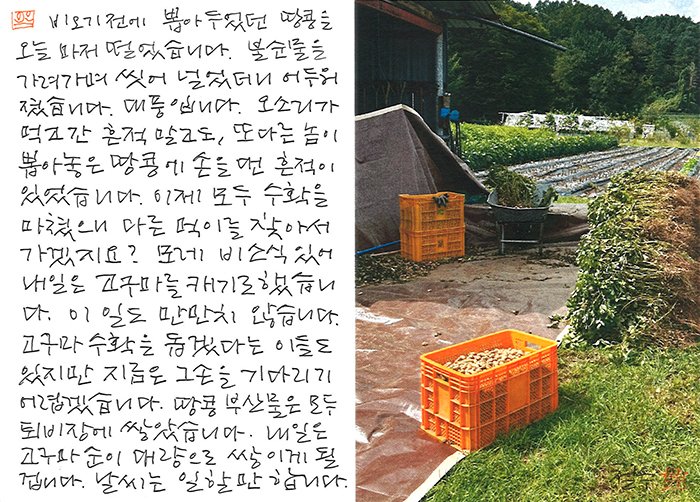 비오기전에 뽑아두었던 땅콩을
오늘 마저 털었습니다. 불순물을
가려가며 씻어 널었더니 어두워
졌습니다. 대풍입니다. 오소리가
먹고간 흔적 말고도, 또다른 놈이
뽑아놓은 땅콩에 손을 댄 흔적이
있었습니다. 이제 모두 수확을
마쳤으니 다른 먹이를 찾아서
가겠지요? 모레 비소식 있어
내일은 고구마를 캐기로했습니
다. 이 일도 만만치 않습니다.
고구마 수확을 돕겠다는 이들도
있지만 지금은 그손을 기다리기
어렵겠습니다. 땅콩 부산물은 모두
퇴비장에 쌓았습니다. 내일은
고구마 순이 대량으로 쌓이게 될
겁니다. 날씨는 일할만 합니다.